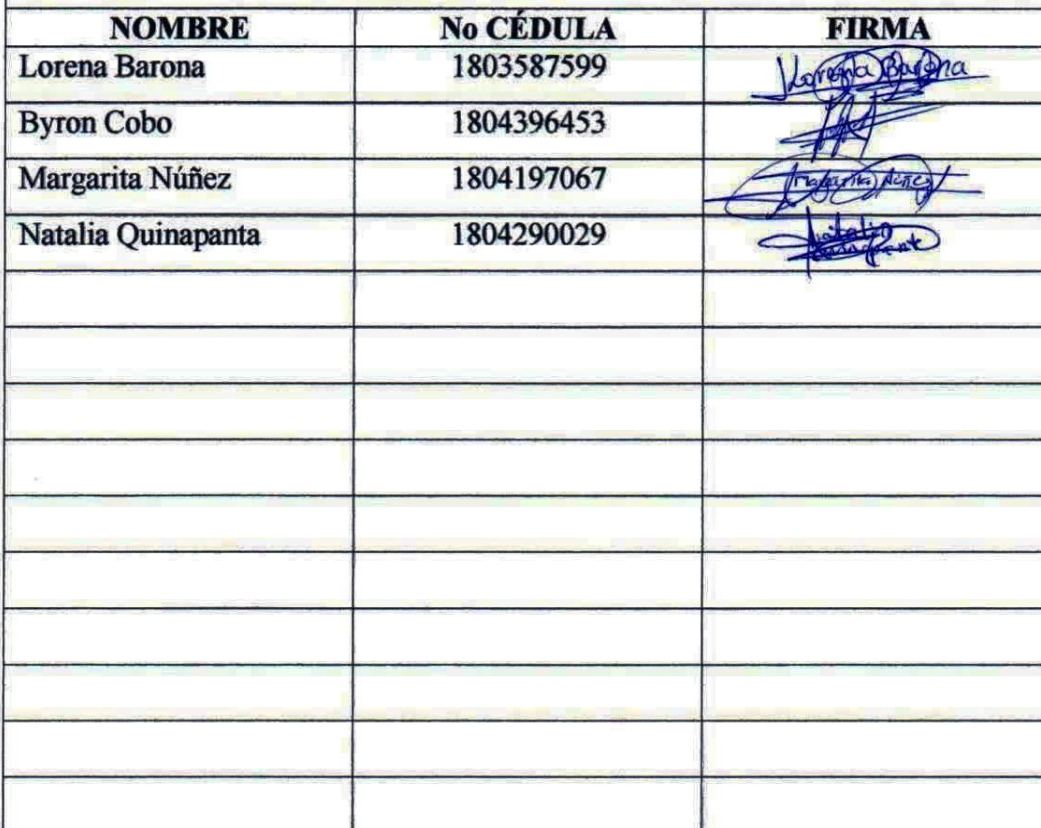 NOMBRE No CÉDULA FIRMA
Lorena Barona 1803587599 Lorena Barona
Byron Cobo 1804396453
Margarita Núñez 1804197067 Margarita Núñez
Natalia Quinapanta 1804290029 Natalia